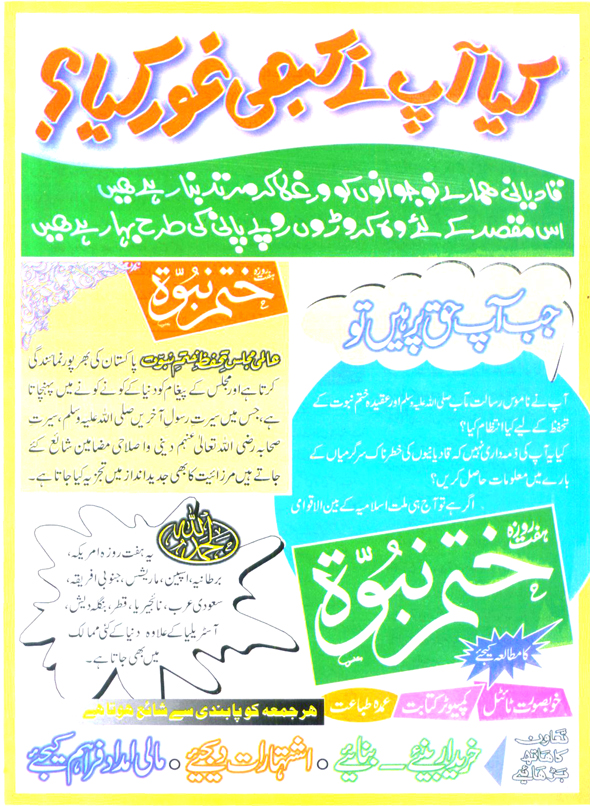 کیا آپ نے کبھی غور کیا؟
قادیانی ہمارے نوجوانوں کو ورغلا کر مرتد بنا رہے ہیں
اس مقصد کے لئے وہ کروڑوں روپے پانی کی طرح بہا رہے ہیں
جب آپ حق پر ہیں تو
آپ نے ناموس رسالت مآب صلی اللہ علیہ وسلم اور عقیدہ ختم نبوت کے
تحفظ کے لیے کیا انتظام کیا؟
کیا یہ آپ کی ذمہ داری نہیں کہ قادیانیوں کی خطرناک سرگرمیاں کے
بارے میں معلومات حاصل کریں؟
اگر ہے تو آج ہی ملت اسلامیہ کے بین الاقوامی
ہفت روزہ
ختم نبوۃ
کا مطالعہ کیجئے
ہفت روزہ
ختم نبوۃ
عالمی مجلس تحفظ ختم نبوت پاکستان کی بھرپور نمائندگی
کرتا ہے اور مجلس کے پیغام کو دنیا کے کونے کونے میں پہنچاتا
ہے، جس میں سیرت رسول آخریں صلی اللہ علیہ وسلم، سیرت
صحابہ رضی اللہ تعالیٰ عنہم دینی و اصلاحی مضامین شائع کئے
جاتے ہیں مرزائیت کا بھی جدید انداز میں تجزیہ کیا جاتا ہے۔
یہ ہفت روزہ امریکہ،
برطانیہ، اسپین، ماریشس، جنوبی افریقہ،
سعودی عرب، نائجیریا، قطر، بنگلہ دیش،
آسٹریلیا کے علاوہ دنیا کے کئی ممالک
میں بھی جاتا ہے۔
خوبصورت ٹائٹل
کمپیوٹر کتابت
عمدہ طباعت
ہر جمعہ کو پابندی سے شائع ہوتا ہے
تعاون
کا ہاتھ
بڑھائیے
خریدار بنئے – بنائیے • اشتہارات دیجئے • مالی امداد فراہم کیجئے